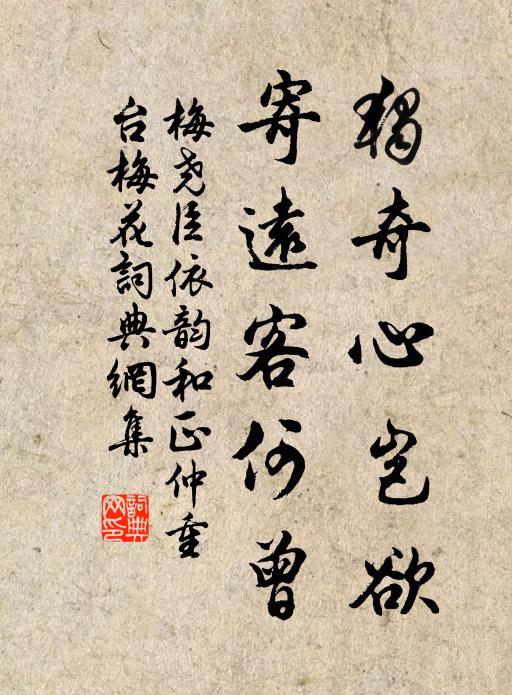 獨奇心豈欲
寄遠客何曾
梅尧臣依韵和正仲重
台梅花詞典網集
詞典网印